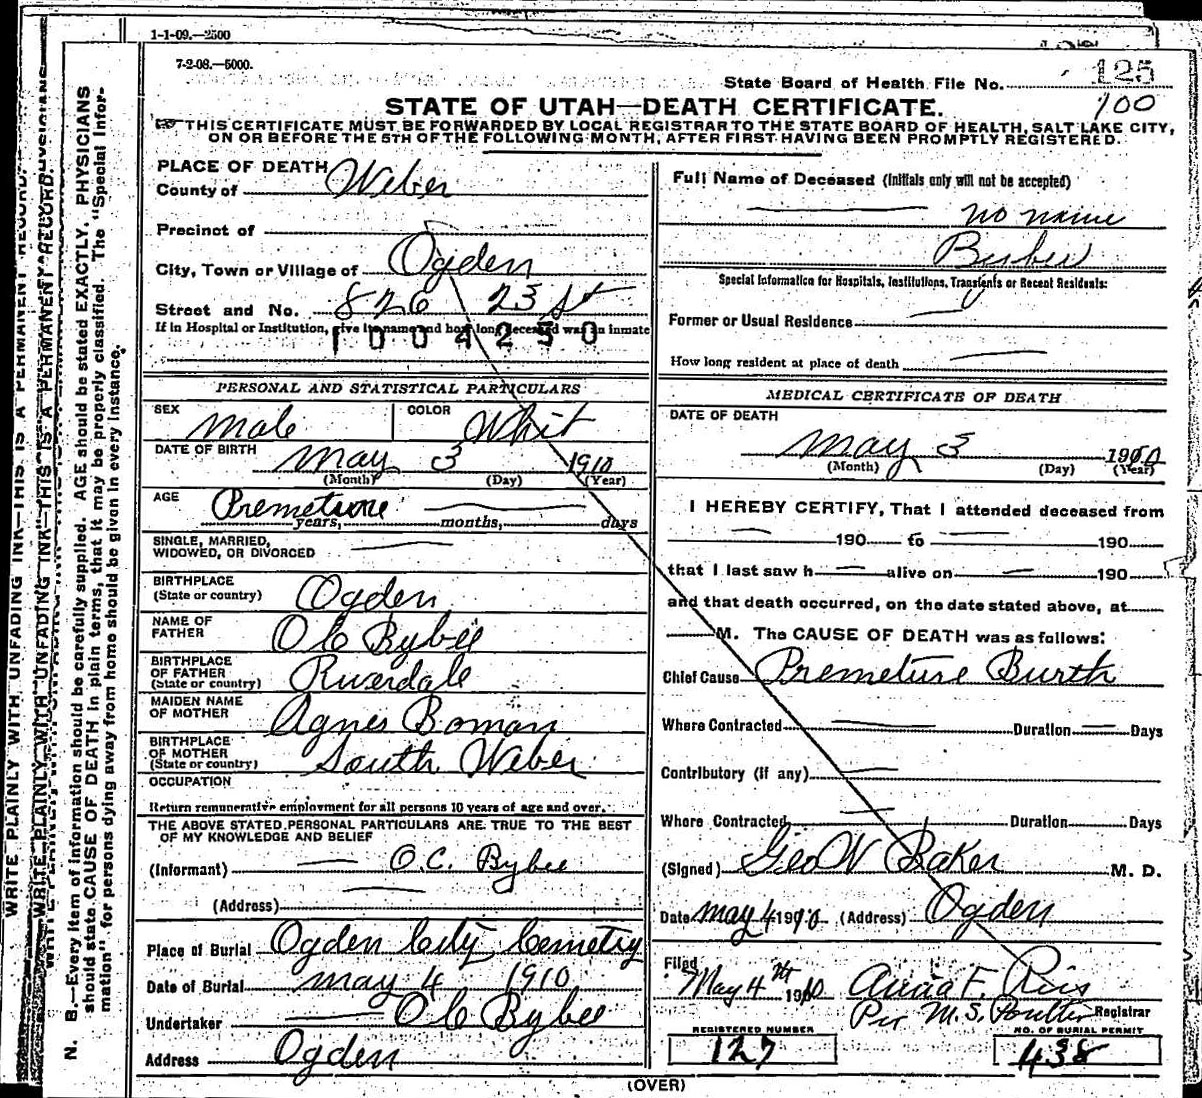 1-1-09.—2500
7-2-08.—5000.
State Board of Health File No. 125
100
STATE OF UTAH—DEATH CERTIFICATE.
THIS CERTIFICATE MUST BE FORWARDED BY LOCAL REGISTRAR TO THE STATE BOARD OF HEALTH, SALT LAKE CITY,
ON OR BEFORE THE 5TH OF THE FOLLOWING MONTH, AFTER FIRST HAVING BEEN PROMPTLY REGISTERED.
WRITE PLAINLY WITH UNFADING INK—THIS IS A PERMANENT RECORD.
N. B.—Every item of information should be carefully supplied. AGE should be stated EXACTLY. PHYSICIANS
should state CAUSE OF DEATH in plain terms, that it may be properly classified. The "Special Infor-
mation" for persons dying away from home should be given in every instance.
PLACE OF DEATH
County of Weber
Precinct of
City, Town or Village of Ogden
Street and No. 826 23 St
If in Hospital or Institution, give its name and how long deceased was an inmate
1004250
PERSONAL AND STATISTICAL PARTICULARS
SEX Male COLOR Whit
DATE OF BIRTH May 3 1910
(Month) (Day) (Year)
AGE Premeture
years, months, days
SINGLE, MARRIED,
WIDOWED, OR DIVORCED
BIRTHPLACE
(State or country) Ogden
NAME OF
FATHER O C Bybee
BIRTHPLACE
OF FATHER
(State or country) Riverdale
MAIDEN NAME
OF MOTHER Agnes Boman
BIRTHPLACE
OF MOTHER
(State or country) South Weber
OCCUPATION
Return remunerative employment for all persons 10 years of age and over.
THE ABOVE STATED PERSONAL PARTICULARS ARE TRUE TO THE BEST
OF MY KNOWLEDGE AND BELIEF
(Informant) O.C. Bybee
(Address)
Place of Burial Ogden City Cemetry
Date of Burial May 4 1910
Undertaker O C Bybee
Address Ogden
Full Name of Deceased (Initials only will not be accepted)
no name
Bybee
Special Information for Hospitals, Institutions, Transients or Recent Residents:
Former or Usual Residence
How long resident at place of death
MEDICAL CERTIFICATE OF DEATH
DATE OF DEATH
May 3 1910
(Month) (Day) (Year)
I HEREBY CERTIFY, That I attended deceased from
190 to 190
that I last saw h alive on 190
and that death occurred, on the date stated above, at
M. The CAUSE OF DEATH was as follows:
Chief Cause Premeture Burth
Where Contracted Duration Days
Contributory (if any)
Where Contracted Duration Days
(Signed) Geo W Baker M. D.
Date May 4 1910 (Address) Ogden
Filed
May 4th 1910 F.
Per M.S. Poulter Registrar
REGISTERED NUMBER
127
NO. OF BURIAL PERMIT
438
(OVER)